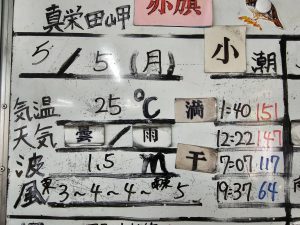 真栄田岬 赤旗
5/5(月) 小潮
気温 25℃ 満 1:40 151
天気 曇/雨 12:22 147
波 1.5m 干 7:07 117
風 3~4~4~5 19:37 64